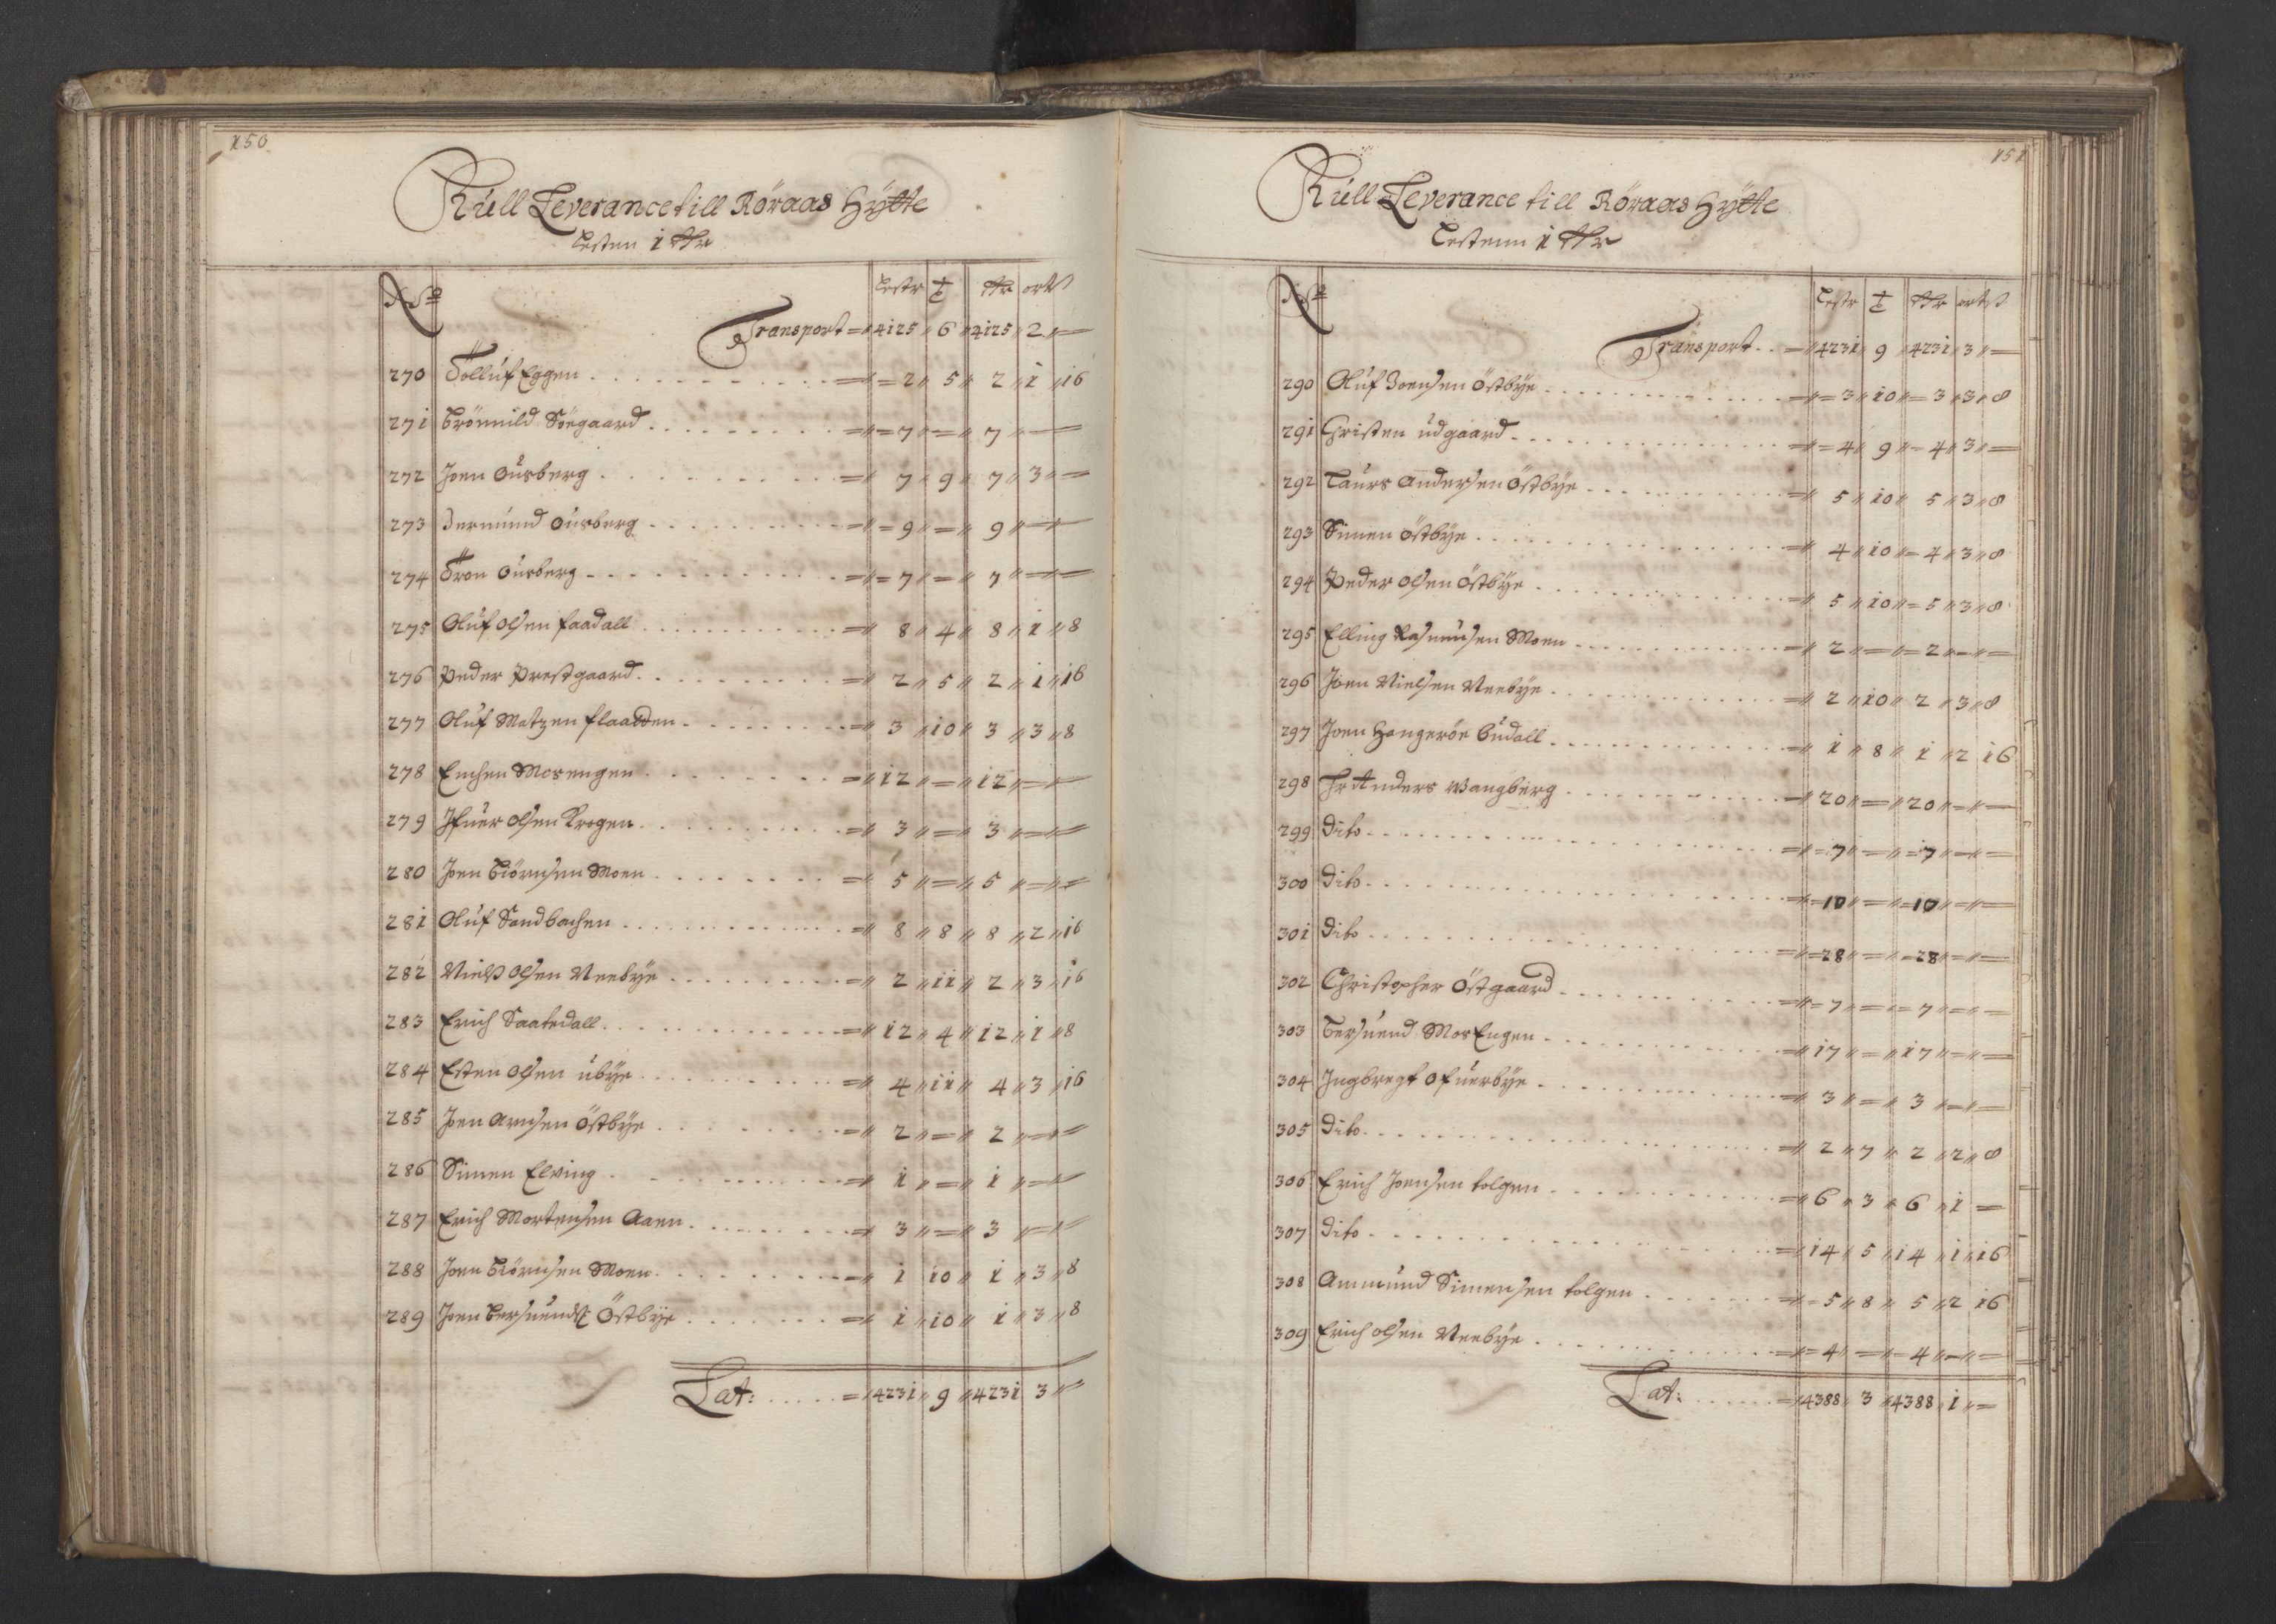 150
Kull Leverance till Röraas Hÿtte
Lesten 1 Rdr
No Lestr t Rdr ort s
Transport = 4125 " 6 " 4125 " 2 " =
270 Tolluf Eggen = " = 2 " 5 " 2 " 1 " 16
271 Brönnild Sörgaard = " = 7 " = " 7 " =
272 Joen Ousberg = " 7 " 9 " 7 " 3 " =
273 Jermund Ousberg = " = 9 " = " 9 " = " =
274 Tron Ousberg = " = 7 " = " 7 " = " =
275 Oluf Olsen faadall = " 8 " 4 " 8 " 1 " 8
276 Peder Prestgaard = " 2 " 5 " 2 " 1 " 16
277 Oluf Matzen flaadden = " 3 " 10 " 3 " 3 " 8
278 Mosengen = " 12 " = " 12 " = " =
279 Ifuer Olsen Krogen = " 3 " = " 3 " = " =
280 Joen Biörnsen Moen = " 5 " = " 5 " = " =
281 Oluf Sandbachen = " 8 " 8 " 8 " 2 " 16
282 Niels Olsen Neebÿe = " 2 " 11 " 2 " 3 " 16
283 Erich Saatedall = " 12 " 4 " 12 " 1 " 8
284 Esten Olsen Ubÿe = " 4 " 11 " 4 " 3 " 16
285 Joen Arnsen Östbÿe = " 2 " = " 2 " = " =
286 Simen Elving = " 1 " = " 1 " = " =
287 Erich Mortensen Aaen = " 3 " = " 3 " = " =
288 Joen Biörnsen Moen = " 1 10 " 1 " 3 " 8
289 Joen Bersuends: Östbÿe = " 1 " 10 " 1 " 3 " 8
Lat: = " 4231 " 9 " 4231 3 " =
151
Kull Leverance till Röraas Hÿtte
Lestenn 1 Rdr
No Lestr t Rdr ort s
Transport = " 4231 " 9 " 4231 " 3 " =
290 Oluf Joensen Östbÿe = " = 3 " 10 " = 3 " 3 " 8
291 Christen Udgaard = " = 4 " 9 " = 4 " 3 " =
292 Laurs Andersen Östbÿe = " 5 " 10 " 5 " 3 " 8
293 Simen Östbÿe = " 4 " 10 " = 4 " 3 " 8
294 Peder Olsen Östbÿe = " 5 " 10 " = 5 " 3 " 8
295 Elling Rasmusen Moen = " 2 " = " = 2 " = " =
296 Joen Nielsen Neebÿe = " 2 " 10 " 2 " 3 " 8
297 Joen Hangeröe Budall = " 1 " 8 " 1 " 2 16
298 Hr Anders Wangberg = " 20 " = " 20 " = " =
299 Dito = " = 7 " = " = 7 " = " =
300 Dito = " = 10 " = " = 10 " = " =
301 Dito = " = 28 " = " = 28 " = " =
302 Christopher Östgaard = " = 7 " = " = 7 " = " =
303 Bersuend MosEngen = " 17 " = " 17 " = " =
304 Ingbregt Ofuerbÿe = " 3 " = " 3 " = " =
305 Dito = " 2 " 7 " 2 " 2 " 8
306 Erich Joensen tolgen = " 6 " 3 " 6 " 1 =
307 Dito = " 14 " 5 " 14 " 1 " 16
308 Ammund Simensen tolgen = " = 5 " 8 " 5 " 2 16
309 Erich Olsen Neebÿe = " = 4 " = " = 4 " = " =
Lat: = " 4388 " 3 " 4388 " 1 " =